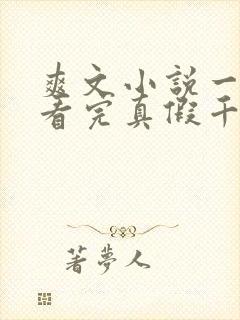 爽文小说一
看完真假千
著夢人